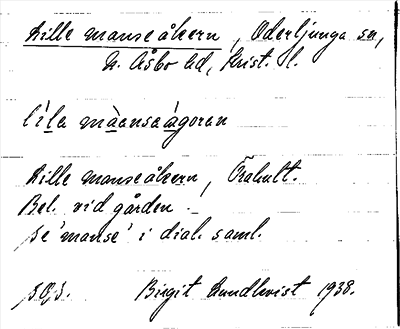 Lille manseåkern, Oderljunga sn,
N. Åsbo hd, Krist. l.
líla màansaàgoren
Lille manseåkern, Örahult.
Bel. vid gården.
Se 'manse' i dial. saml.
Birgit Lundkvist 1938.